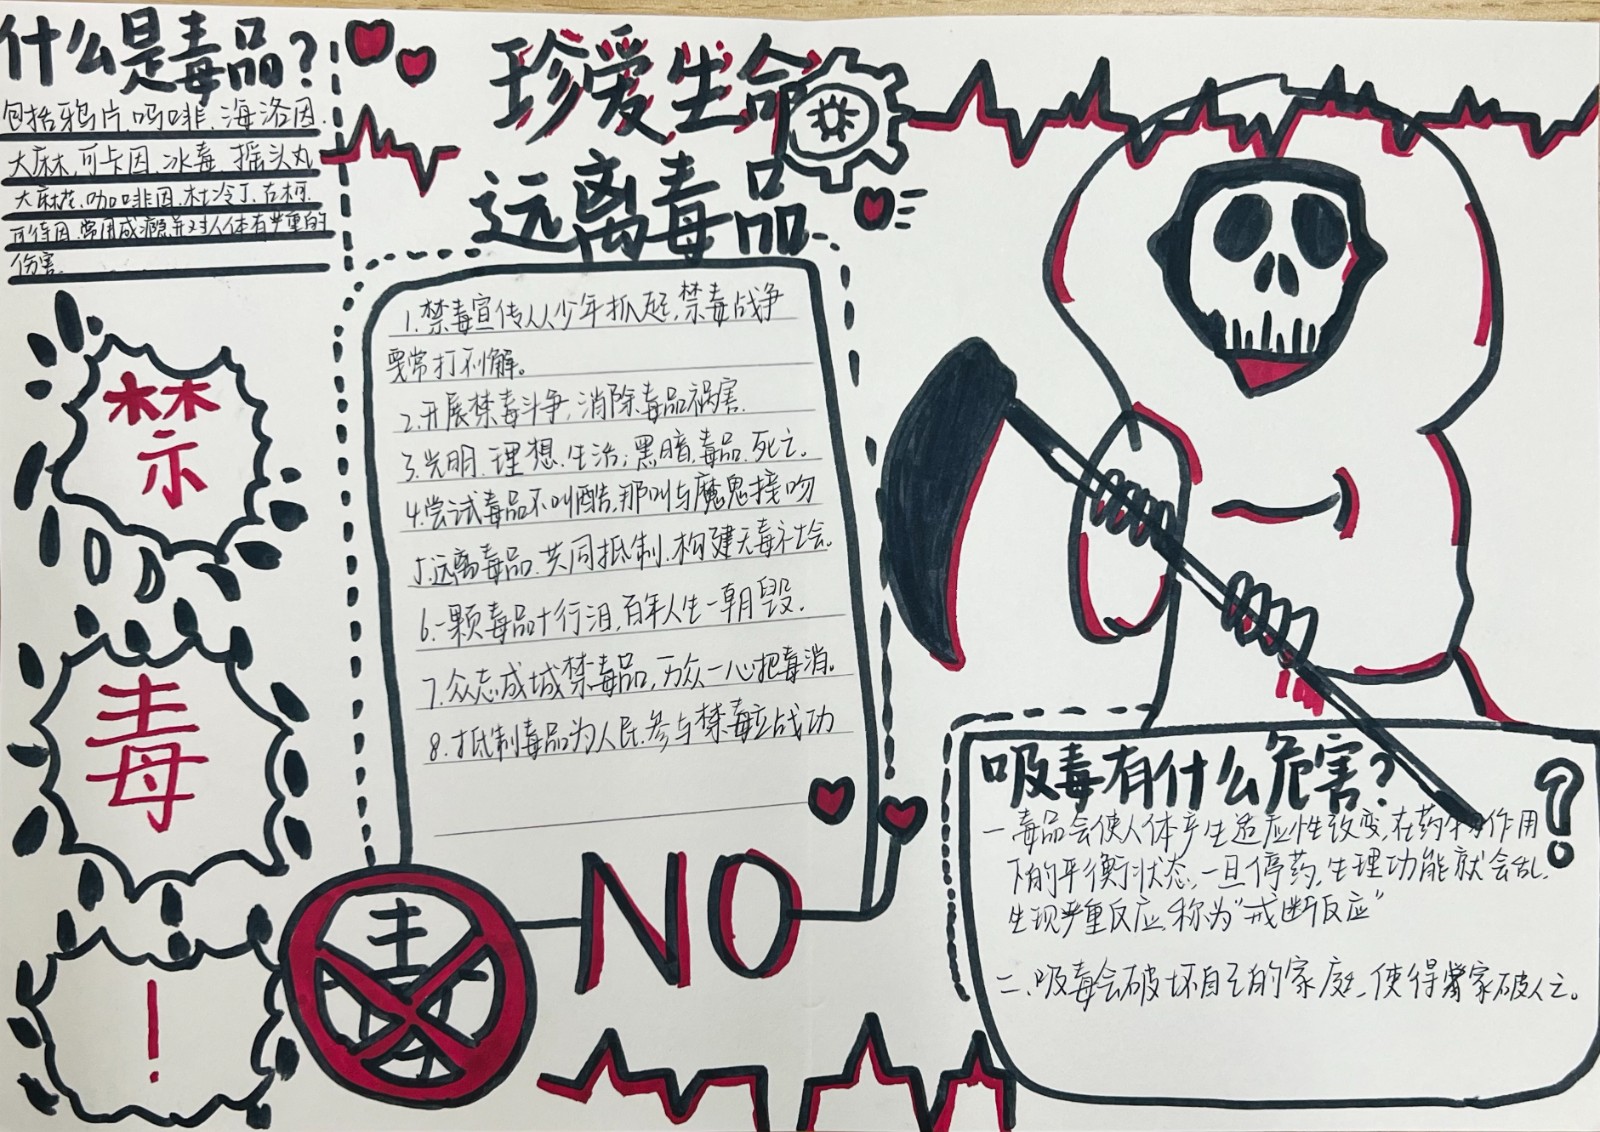 什么是毒品?
包括鸦片.吗啡.海洛因.
大麻.可卡因.冰毒.摇头丸
大麻花.咖啡因.杜冷丁.古柯.
可待因.常用成瘾并对人体有严重的
伤害.
珍爱生命
远离毒品
禁
毒
!
1.禁毒宣传从少年抓起,禁毒战争
要常打不懈。
2.开展禁毒斗争,消除毒品祸害.
3.光明.理想.生活;黑暗.毒品.死亡。
4.尝试毒品不叫酷,那叫与魔鬼接吻
5.远离毒品.共同抵制.构建无毒社会。
6.一颗毒品十行泪,百年人生一朝毁.
7.众志成城禁毒品,万众一心把毒消。
8.抵制毒品为人民.参与禁毒立战功
毒
NO
吸毒有什么危害?
?
一 毒品会使人体产生适应性改变,在药物作用
下的平衡状态,一旦停药,生理功能就会乱,
生现严重反应,称为"戒断反应"
二.吸毒会破坏自己的家庭,使得家破人亡。